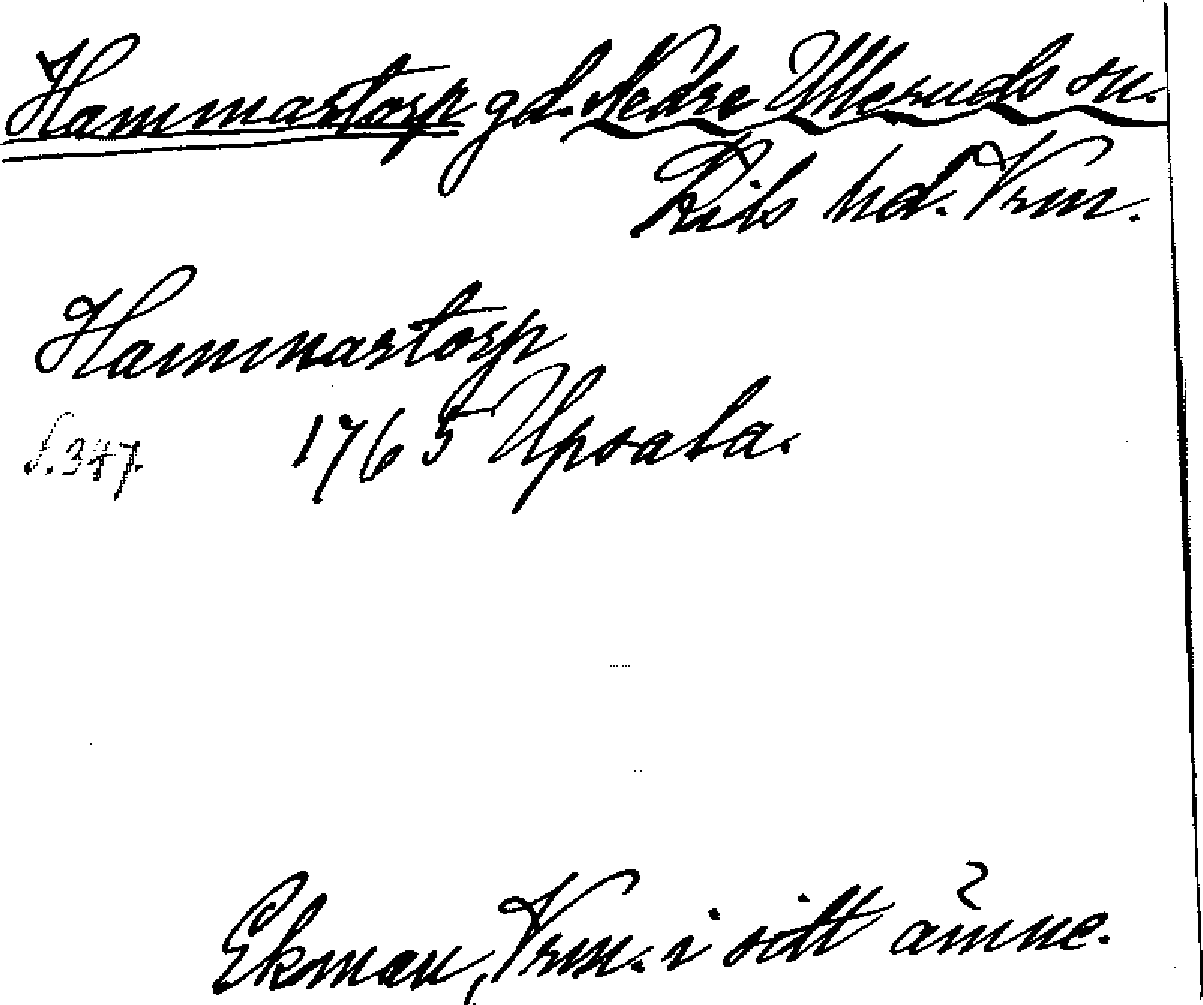 Hammartorp gd. Nedre Ulleruds sn.
Kils hd. Vrm.
Hammartorp
S. 347. 1765 Upsala.
Ekman, Vrm. i sitt ämne.